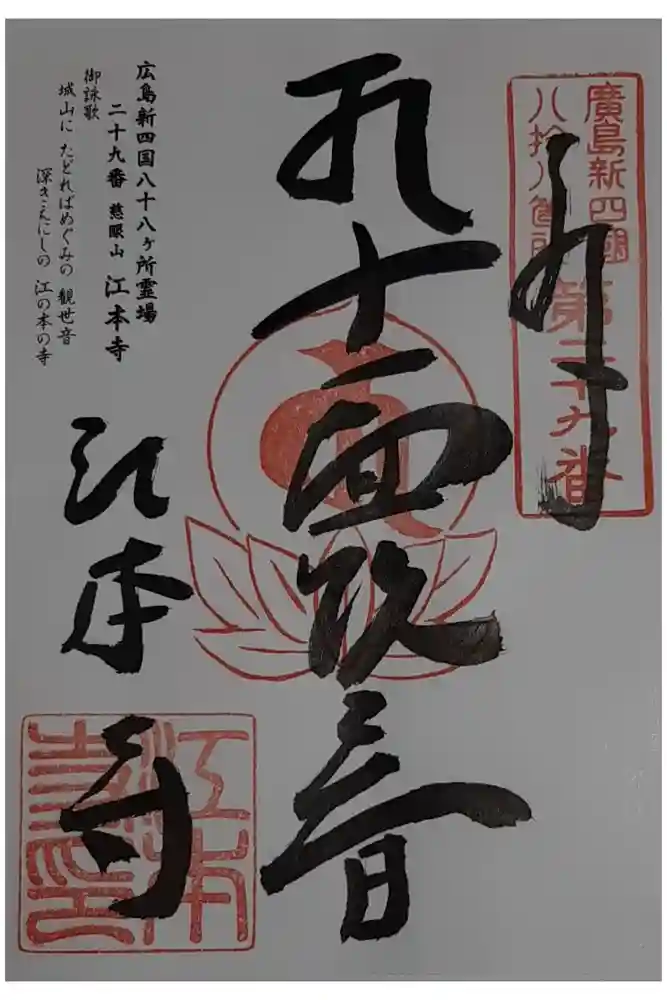 廣島新四國
八拾八箇所
第二十九番
十一面観音
広島新四国八十八ヶ所霊場
二十九番 慈眼山 江本寺
御詠歌
城山に たどればめぐみの 観世音
深きえにしの 江の本の寺
江本寺
江本
寺印